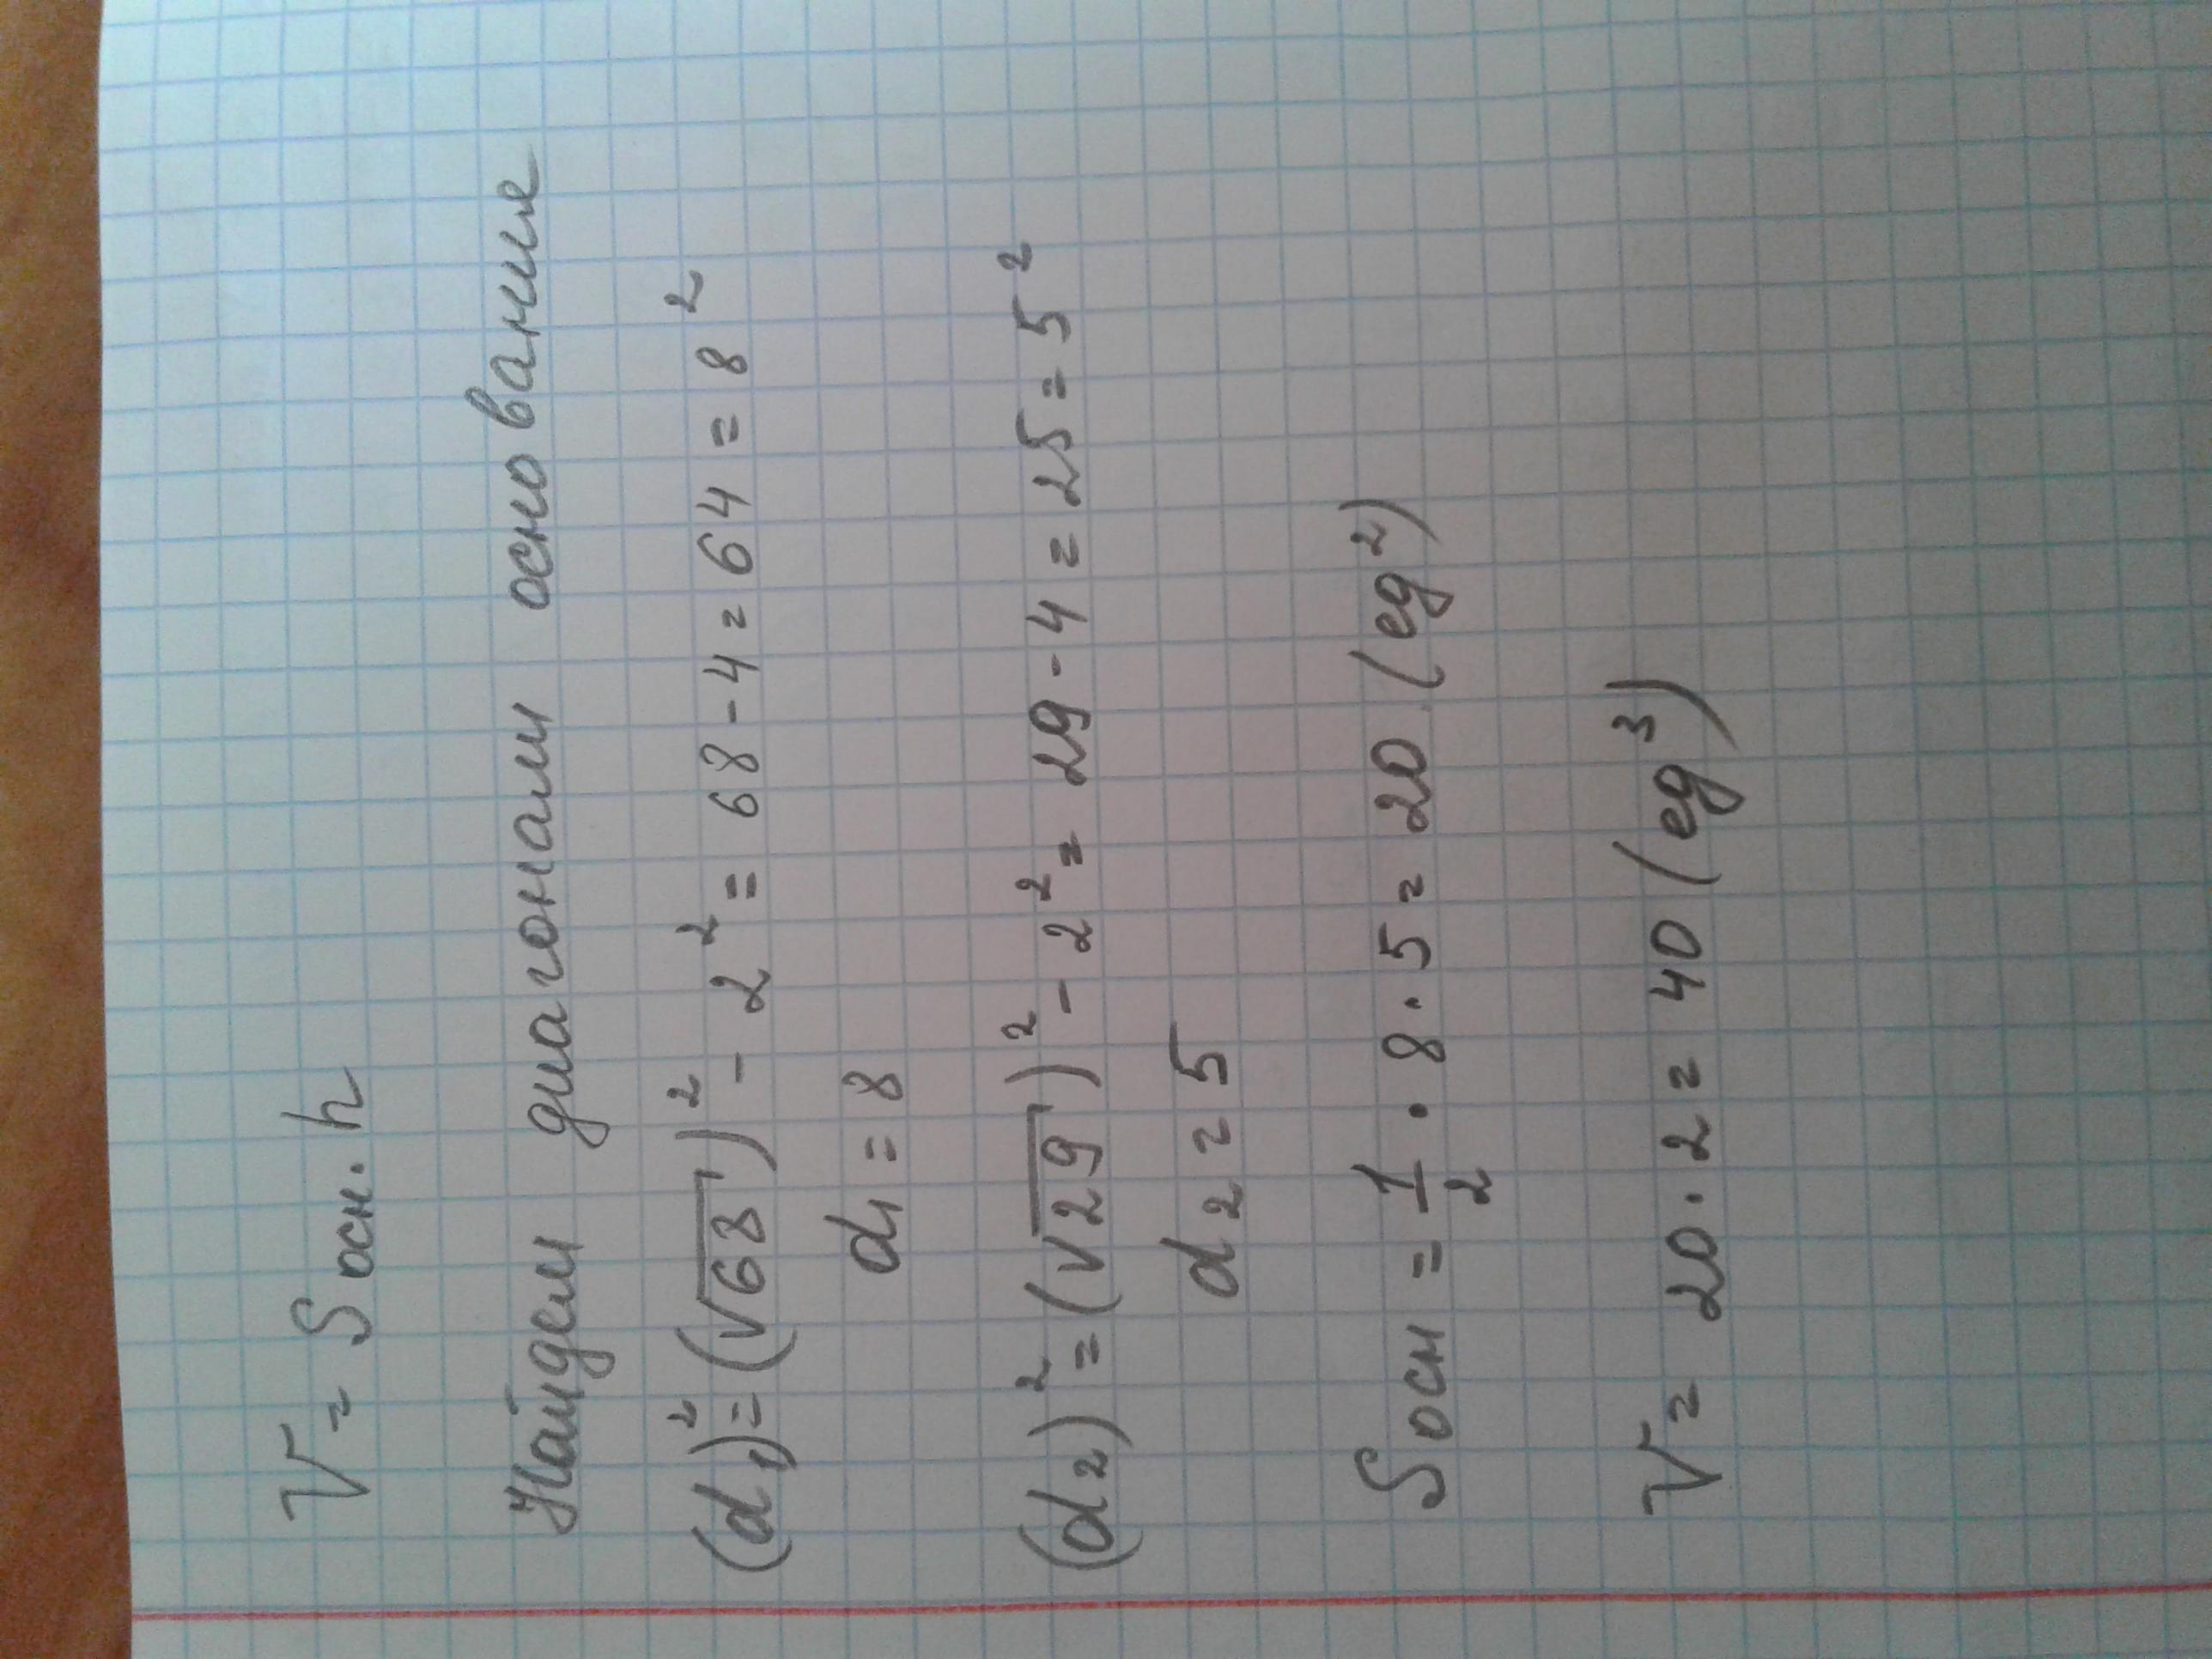 V = Sосн. h
Найдем диагонали основание
(d₁)² = (√68)² - 2² = 68 - 4 = 64 = 8²
d₁ = 8
(d₂)² = (√29)² - 2² = 29 - 4 = 25 = 5²
d₂ = 5
Sосн = 1/2 · 8 · 5 = 20 (ед²)
V = 20 · 2 = 40 (ед³)